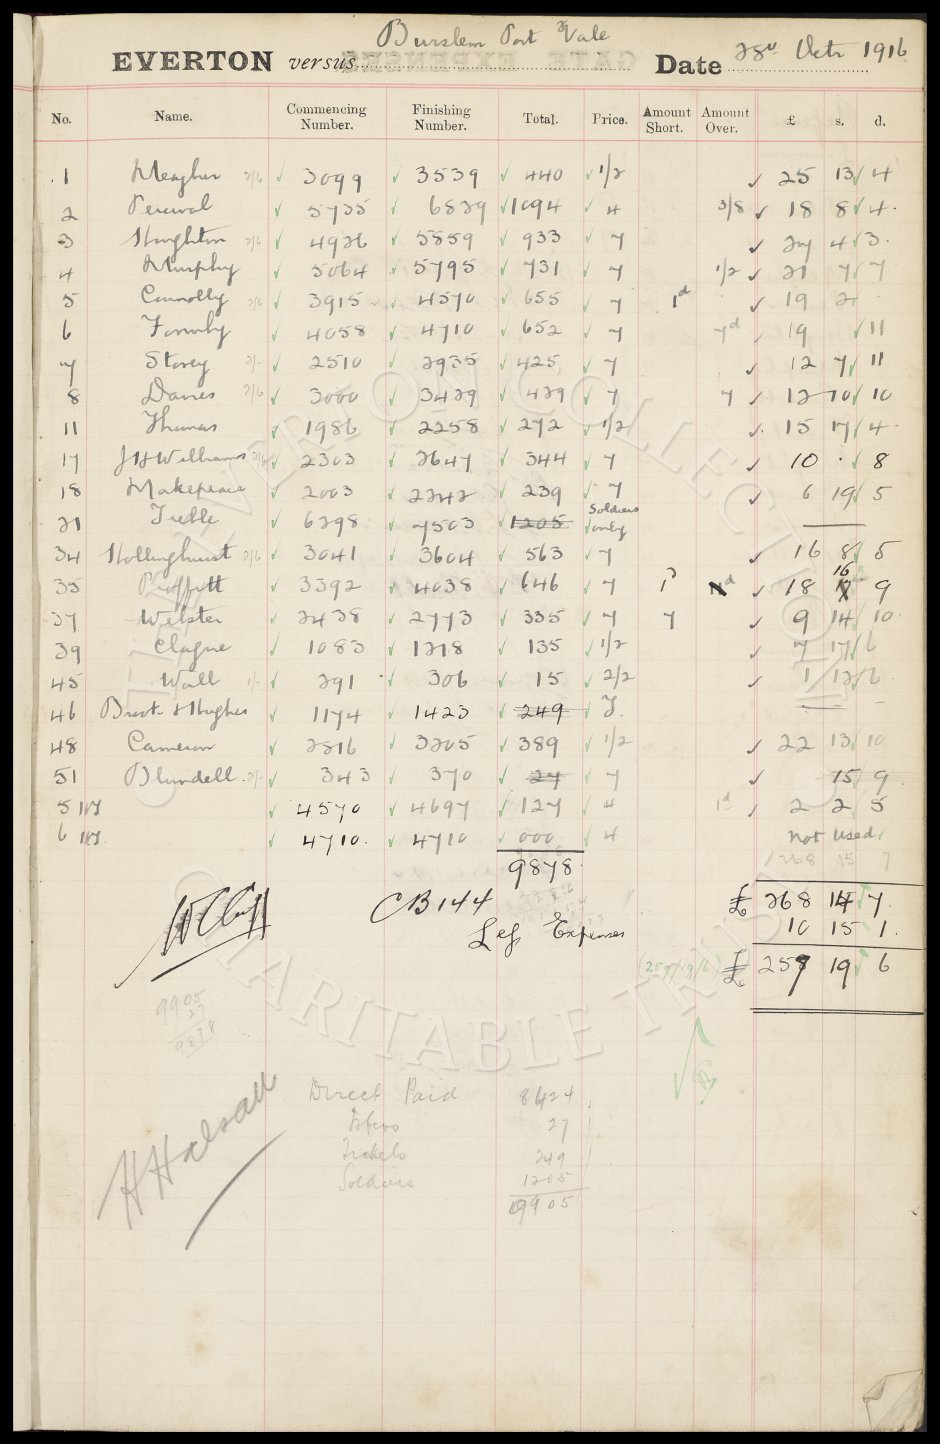 Burslem Port Vale
EVERTON versus Date 28th Octr 1916
No. Name. Commencing Number. Finishing Number. Total. Price. Amount Short. Amount Over. £ s. d.
1 Meagher 2/6 3099 3539 440 1/2 25 13 4
2 Percival 5735 6829 1094 4 3/8 18 8 4
3 Houghton 2/6 4926 5859 933 7 27 4 3
4 Murphy 5064 5795 731 7 1/2 21 7 7
5 Connolly 2/6 3915 4570 655 7 1d 19 2
6 Formby 4058 4710 652 7 7d 19 11
7 Storey 2/- 2510 2935 425 7 12 7 11
8 Davies 2/6 3000 3429 429 7 7 12 10 10
11 Thomas 1986 2258 272 1/2 15 17 4
17 J H Williams 2/6 2303 2647 344 7 10 . 8
18 Makepeace 2003 2242 239 7 6 19 5
21 Treble 6298 7503 1205 Soldiers only
34 Hollinghurst 2/6 3041 3604 563 7 16 8 5
35 Proffitt 3392 4038 646 7 1d 18 16 9
37 Webster 2438 2773 335 7 7 9 14 10
39 Clague 1083 1218 135 1/2 7 17 6
45 Wall 1/- 291 306 15 2/2 1 12 6
46 Brook & Hughes 1174 1423 249 J.
48 Cameron 2816 3205 389 1/2 22 13 10
51 Blundell 2/- 343 370 27 7 15 9
5 4570 4697 127 4 1d 2 2 5
6 4710 4710 000 4 not used
268 15 7
9878
£ 268 14 7
CB 144 10 15 1
Less Expenses
(257/19/6) £ 257 19 6
9905
27
9878
H Halsall
Direct Paid 8424
Boys 27
Tickets 249
Soldiers 1205
9905
EVERTON COLLECTION
CHARITABLE TRUST